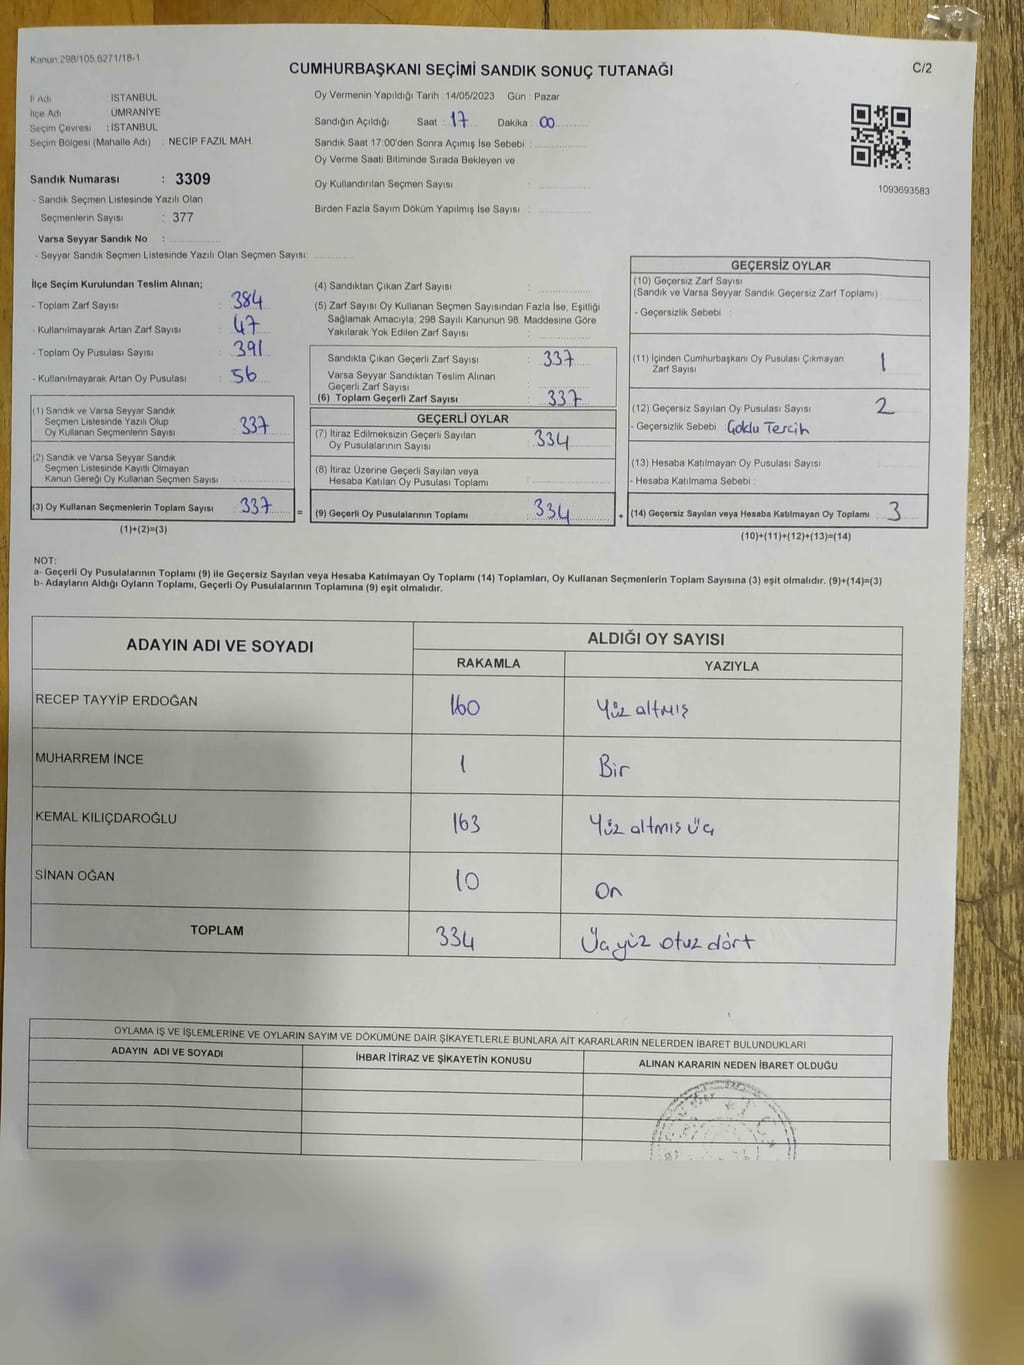 Kanun 298/105,6271/18-1
CUMHURBAŞKANI SEÇİMİ SANDIK SONUÇ TUTANAĞI
C/2
İl Adı İSTANBUL
İlçe Adı ÜMRANİYE
Seçim Çevresi : İSTANBUL
Seçim Bölgesi (Mahalle Adı) : NECİP FAZIL MAH.
Sandık Numarası : 3309
- Sandık Seçmen Listesinde Yazılı Olan
Seçmenlerin Sayısı : 377
Varsa Seyyar Sandık No :
- Seyyar Sandık Seçmen Listesinde Yazılı Olan Seçmen Sayısı:
Oy Vermenin Yapıldığı Tarih : 14/05/2023 Gün : Pazar
Sandığın Açıldığı Saat : 17 Dakika : 00
Sandık Saat 17:00'den Sonra Açımış İse Sebebi :
Oy Verme Saati Bitiminde Sırada Bekleyen ve
Oy Kullandırılan Seçmen Sayısı :
Birden Fazla Sayım Döküm Yapılmış İse Sayısı :
1093693583
İlçe Seçim Kurulundan Teslim Alınan;
- Toplam Zarf Sayısı : 384
- Kullanılmayarak Artan Zarf Sayısı : 47
- Toplam Oy Pusulası Sayısı : 391
- Kullanılmayarak Artan Oy Pusulası : 56
(1) Sandık ve Varsa Seyyar Sandık
Seçmen Listesinde Yazılı Olup
Oy Kullanan Seçmenlerin Sayısı : 337
(2) Sandık ve Varsa Seyyar Sandık
Seçmen Listesinde Kayıtlı Olmayan
Kanun Gereği Oy Kullanan Seçmen Sayısı :
(3) Oy Kullanan Seçmenlerin Toplam Sayısı : 337
(1)+(2)=(3)
=
(4) Sandıktan Çıkan Zarf Sayısı :
(5) Zarf Sayısı Oy Kullanan Seçmen Sayısından Fazla İse, Eşitliği
Sağlamak Amacıyla, 298 Sayılı Kanunun 98. Maddesine Göre
Yakılarak Yok Edilen Zarf Sayısı :
Sandıkta Çıkan Geçerli Zarf Sayısı : 337
Varsa Seyyar Sandıktan Teslim Alınan
Geçerli Zarf Sayısı :
(6) Toplam Geçerli Zarf Sayısı : 337
GEÇERLİ OYLAR
(7) İtiraz Edilmeksizin Geçerli Sayılan
Oy Pusulalarının Sayısı : 334
(8) İtiraz Üzerine Geçerli Sayılan veya
Hesaba Katılan Oy Pusulası Toplamı :
(9) Geçerli Oy Pusulalarının Toplamı : 334
+
GEÇERSİZ OYLAR
(10) Geçersiz Zarf Sayısı
(Sandık ve Varsa Seyyar Sandık Geçersiz Zarf Toplamı) :
- Geçersizlik Sebebi :
(11) İçinden Cumhurbaşkanı Oy Pusulası Çıkmayan
Zarf Sayısı 1
(12) Geçersiz Sayılan Oy Pusulası Sayısı 2
- Geçersizlik Sebebi : Çoklu Tercih
(13) Hesaba Katılmayan Oy Pusulası Sayısı
- Hesaba Katılmama Sebebi :
(14) Geçersiz Sayılan veya Hesaba Katılmayan Oy Toplamı : 3
(10)+(11)+(12)+(13)=(14)
NOT:
a- Geçerli Oy Pusulalarının Toplamı (9) ile Geçersiz Sayılan veya Hesaba Katılmayan Oy Toplamı (14) Toplamları, Oy Kullanan Seçmenlerin Toplam Sayısına (3) eşit olmalıdır. (9)+(14)=(3)
b- Adayların Aldığı Oyların Toplamı, Geçerli Oy Pusulalarının Toplamına (9) eşit olmalıdır.
ADAYIN ADI VE SOYADI ALDIĞI OY SAYISI
RAKAMLA YAZIYLA
RECEP TAYYİP ERDOĞAN 160 Yüz altmış
MUHARREM İNCE 1 Bir
KEMAL KILIÇDAROĞLU 163 Yüz altmış üç
SİNAN OĞAN 10 On
TOPLAM 334 Üçyüz otuz dört
OYLAMA İŞ VE İŞLEMLERİNE VE OYLARIN SAYIM VE DÖKÜMÜNE DAİR ŞİKAYETLERLE BUNLARA AİT KARARLARIN NELERDEN İBARET BULUNDUKLARI
ADAYIN ADI VE SOYADI İHBAR İTİRAZ VE ŞİKAYETİN KONUSU ALINAN KARARIN NEDEN İBARET OLDUĞU